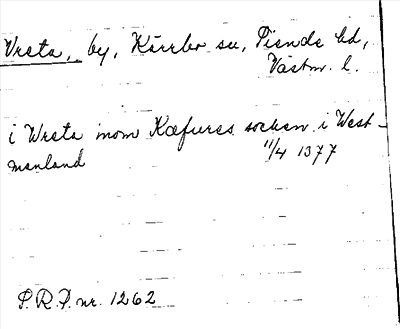 Vreta, by, Kärrbo sn, Siende hd,
Västm. l.
i Wreta inom Kæfures socken i West-
manland 11/4 1377
P.R.P. nr. 1262